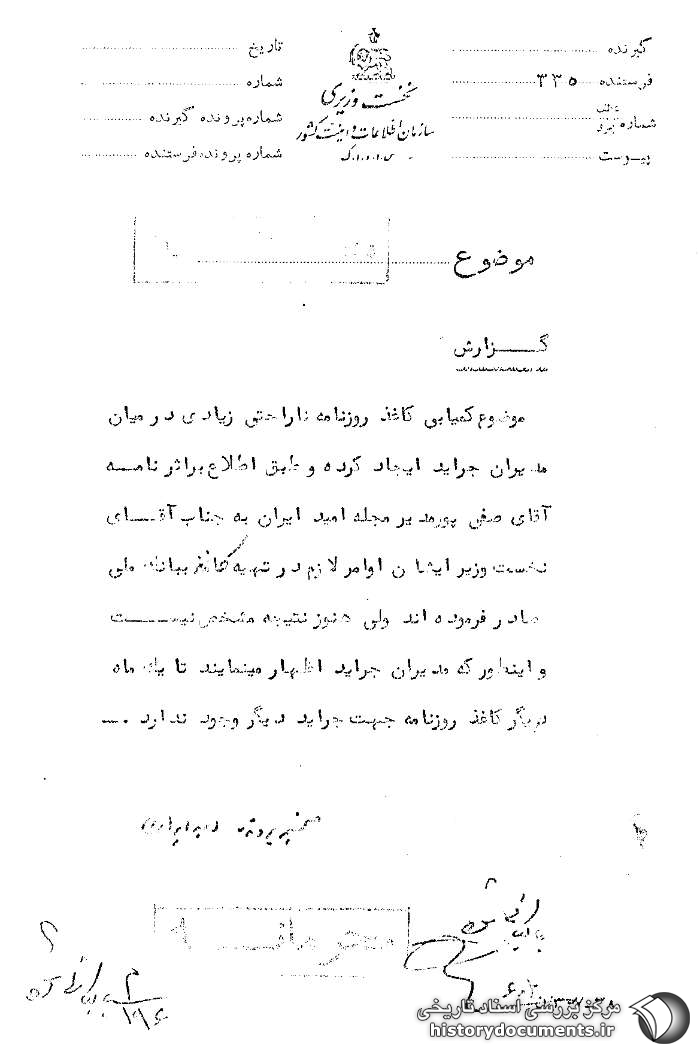 گیرنده
فرستنده ۳۳۵
شماره
پیوست
نخست وزیری
سازمان اطلاعات و امنیت کشور
س.ا.و.ا.ک
تاریخ
شماره
شماره پرونده گیرنده
شماره پرونده فرستنده
موضوع
گزارش
موضوع کمیابی کاغذ روزنامه ناراحتی زیادی در میان
مدیران جراید ایجاد کرده و طبق اطلاع براثر نامه
آقای صفی پور مدیر مجله امید ایران به جناب آقای
نخست وزیر ایشان اوامر لازم در تهیه کاغذ ببانک ملی
صادر فرموده اند ولی هنوز نتیجه مشخص نیست
و اینطور که مدیران جراید اظهار مینمایند تا یک ماه
دیگر کاغذ روزنامه جهت جراید دیگر وجود ندارد .ــ
محرمانه
مرکز بررسی اسناد تاریخی
historydocuments.ir